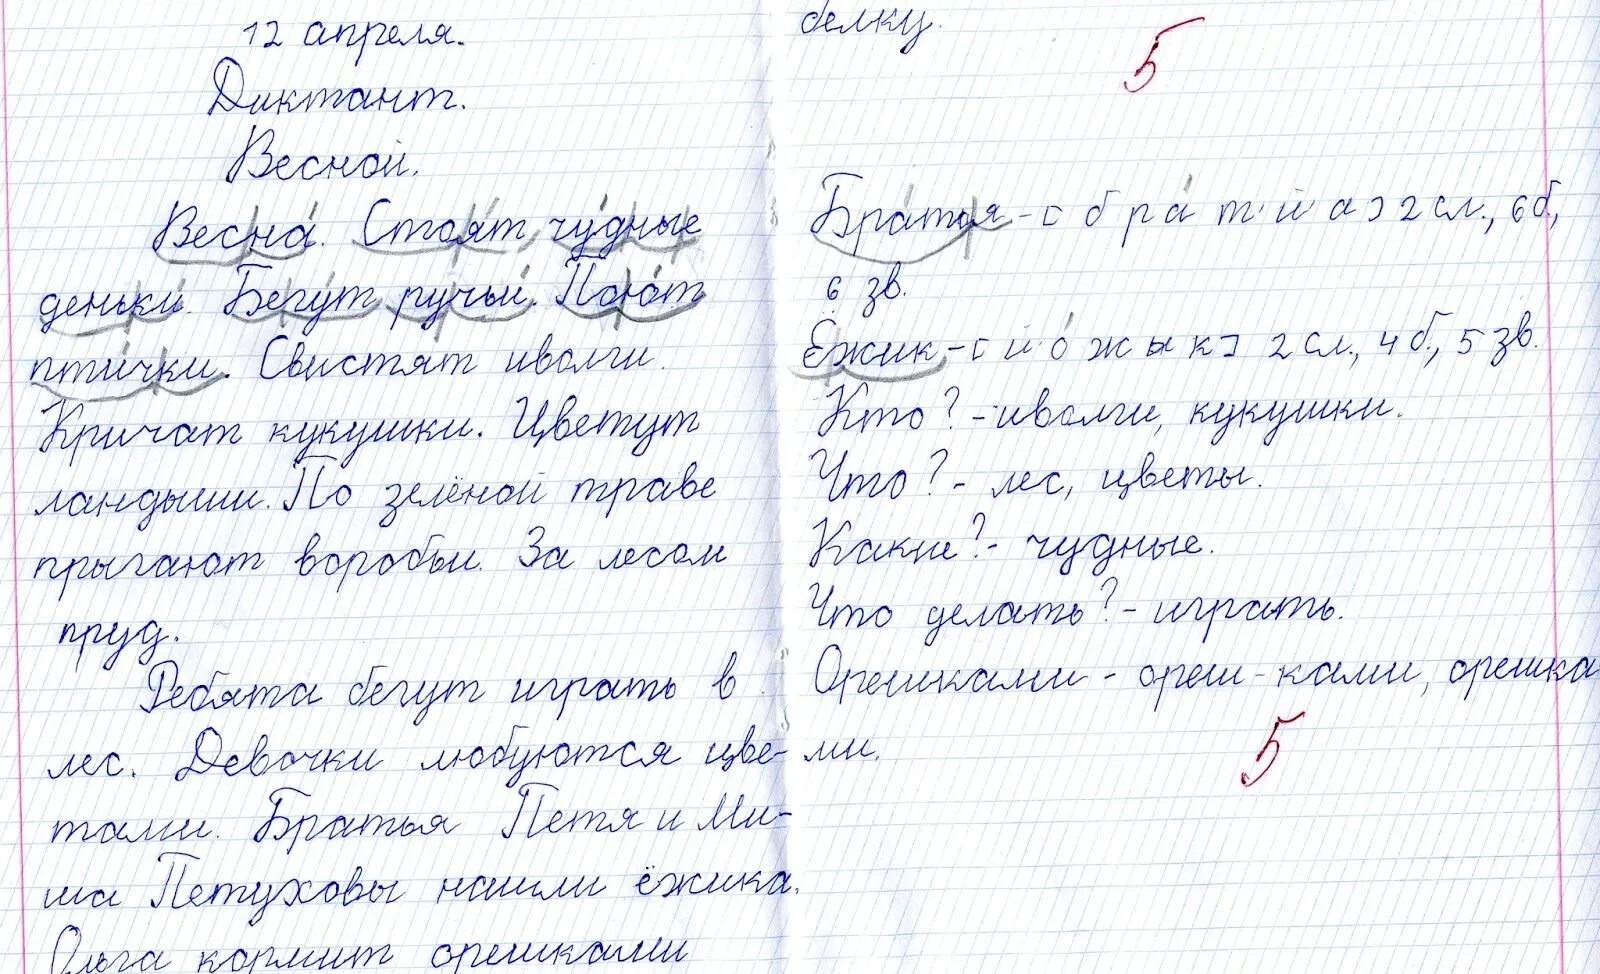 12 апреля.
Диктант.
Весной.
Весна́. Стоя́т чу́дные
деньки́. Бегу́т ручьи́. Пою́т
пти́чки. Свистят иволги.
Кричат кукушки. Цветут
ландыши. По зелёной траве
прыгают воробьи. За лесом
пруд.
Ребята бегут играть в
лес. Девочки любуются цве-
тами. Братья Петя и Ми-
ша Петуховы нашли ёжика.
Ольга кормит орешками
белку.
5
Бра́тья - [б р а́ т' й' а] 2 сл., 6 б.,
6 зв.
Ёжик - [й' о́ ж ы к] 2 сл., 4 б., 5 зв.
Кто? - иволги, кукушки.
Что? - лес, цветы.
Какие? - чудные.
Что делать? - играть.
Орешками - ореш-ками, орешка
ми.
5